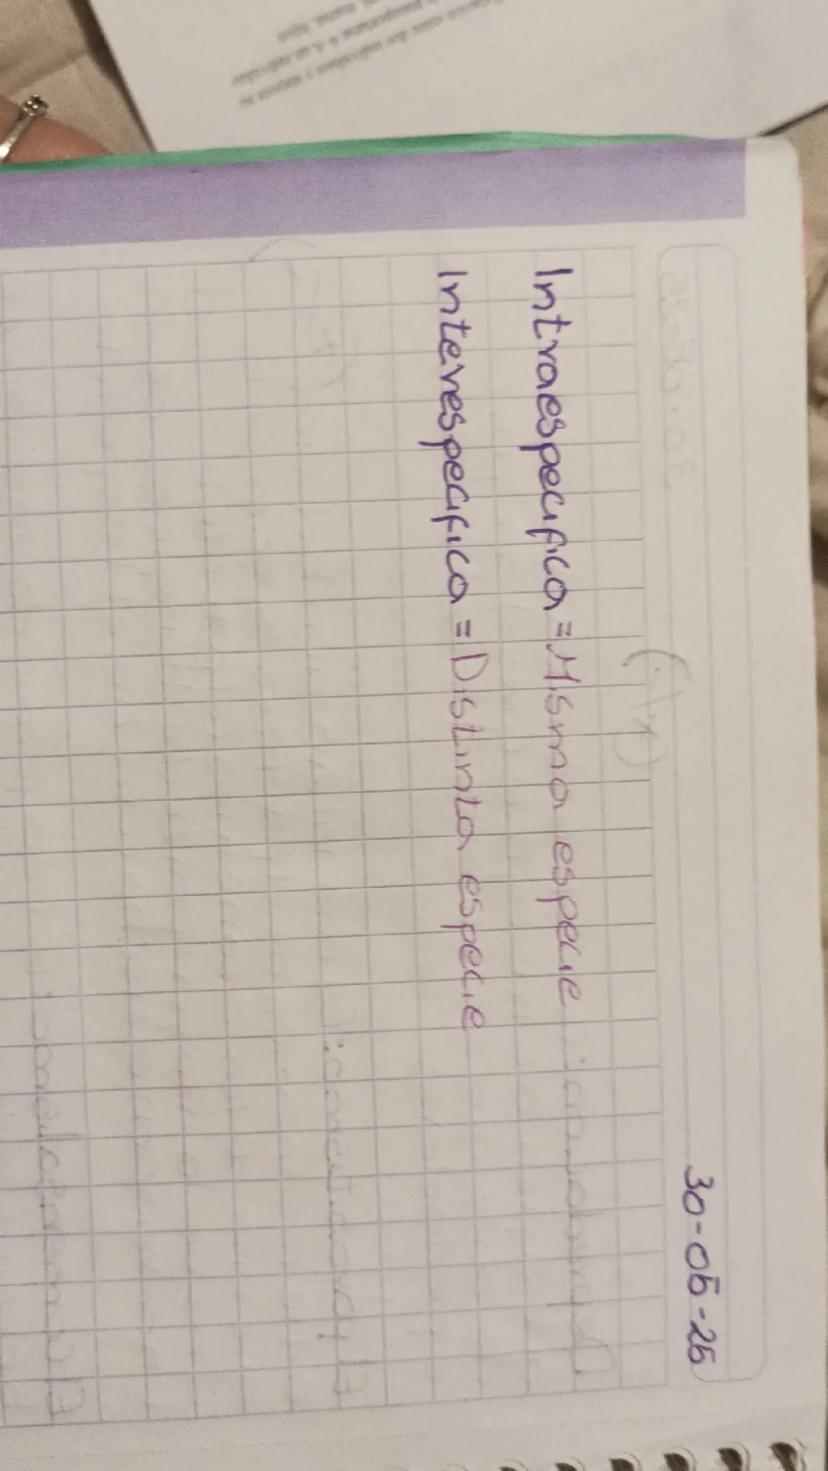 30-05-25
Intraespecifica = Misma especie
Interespecifica = Distinta especie